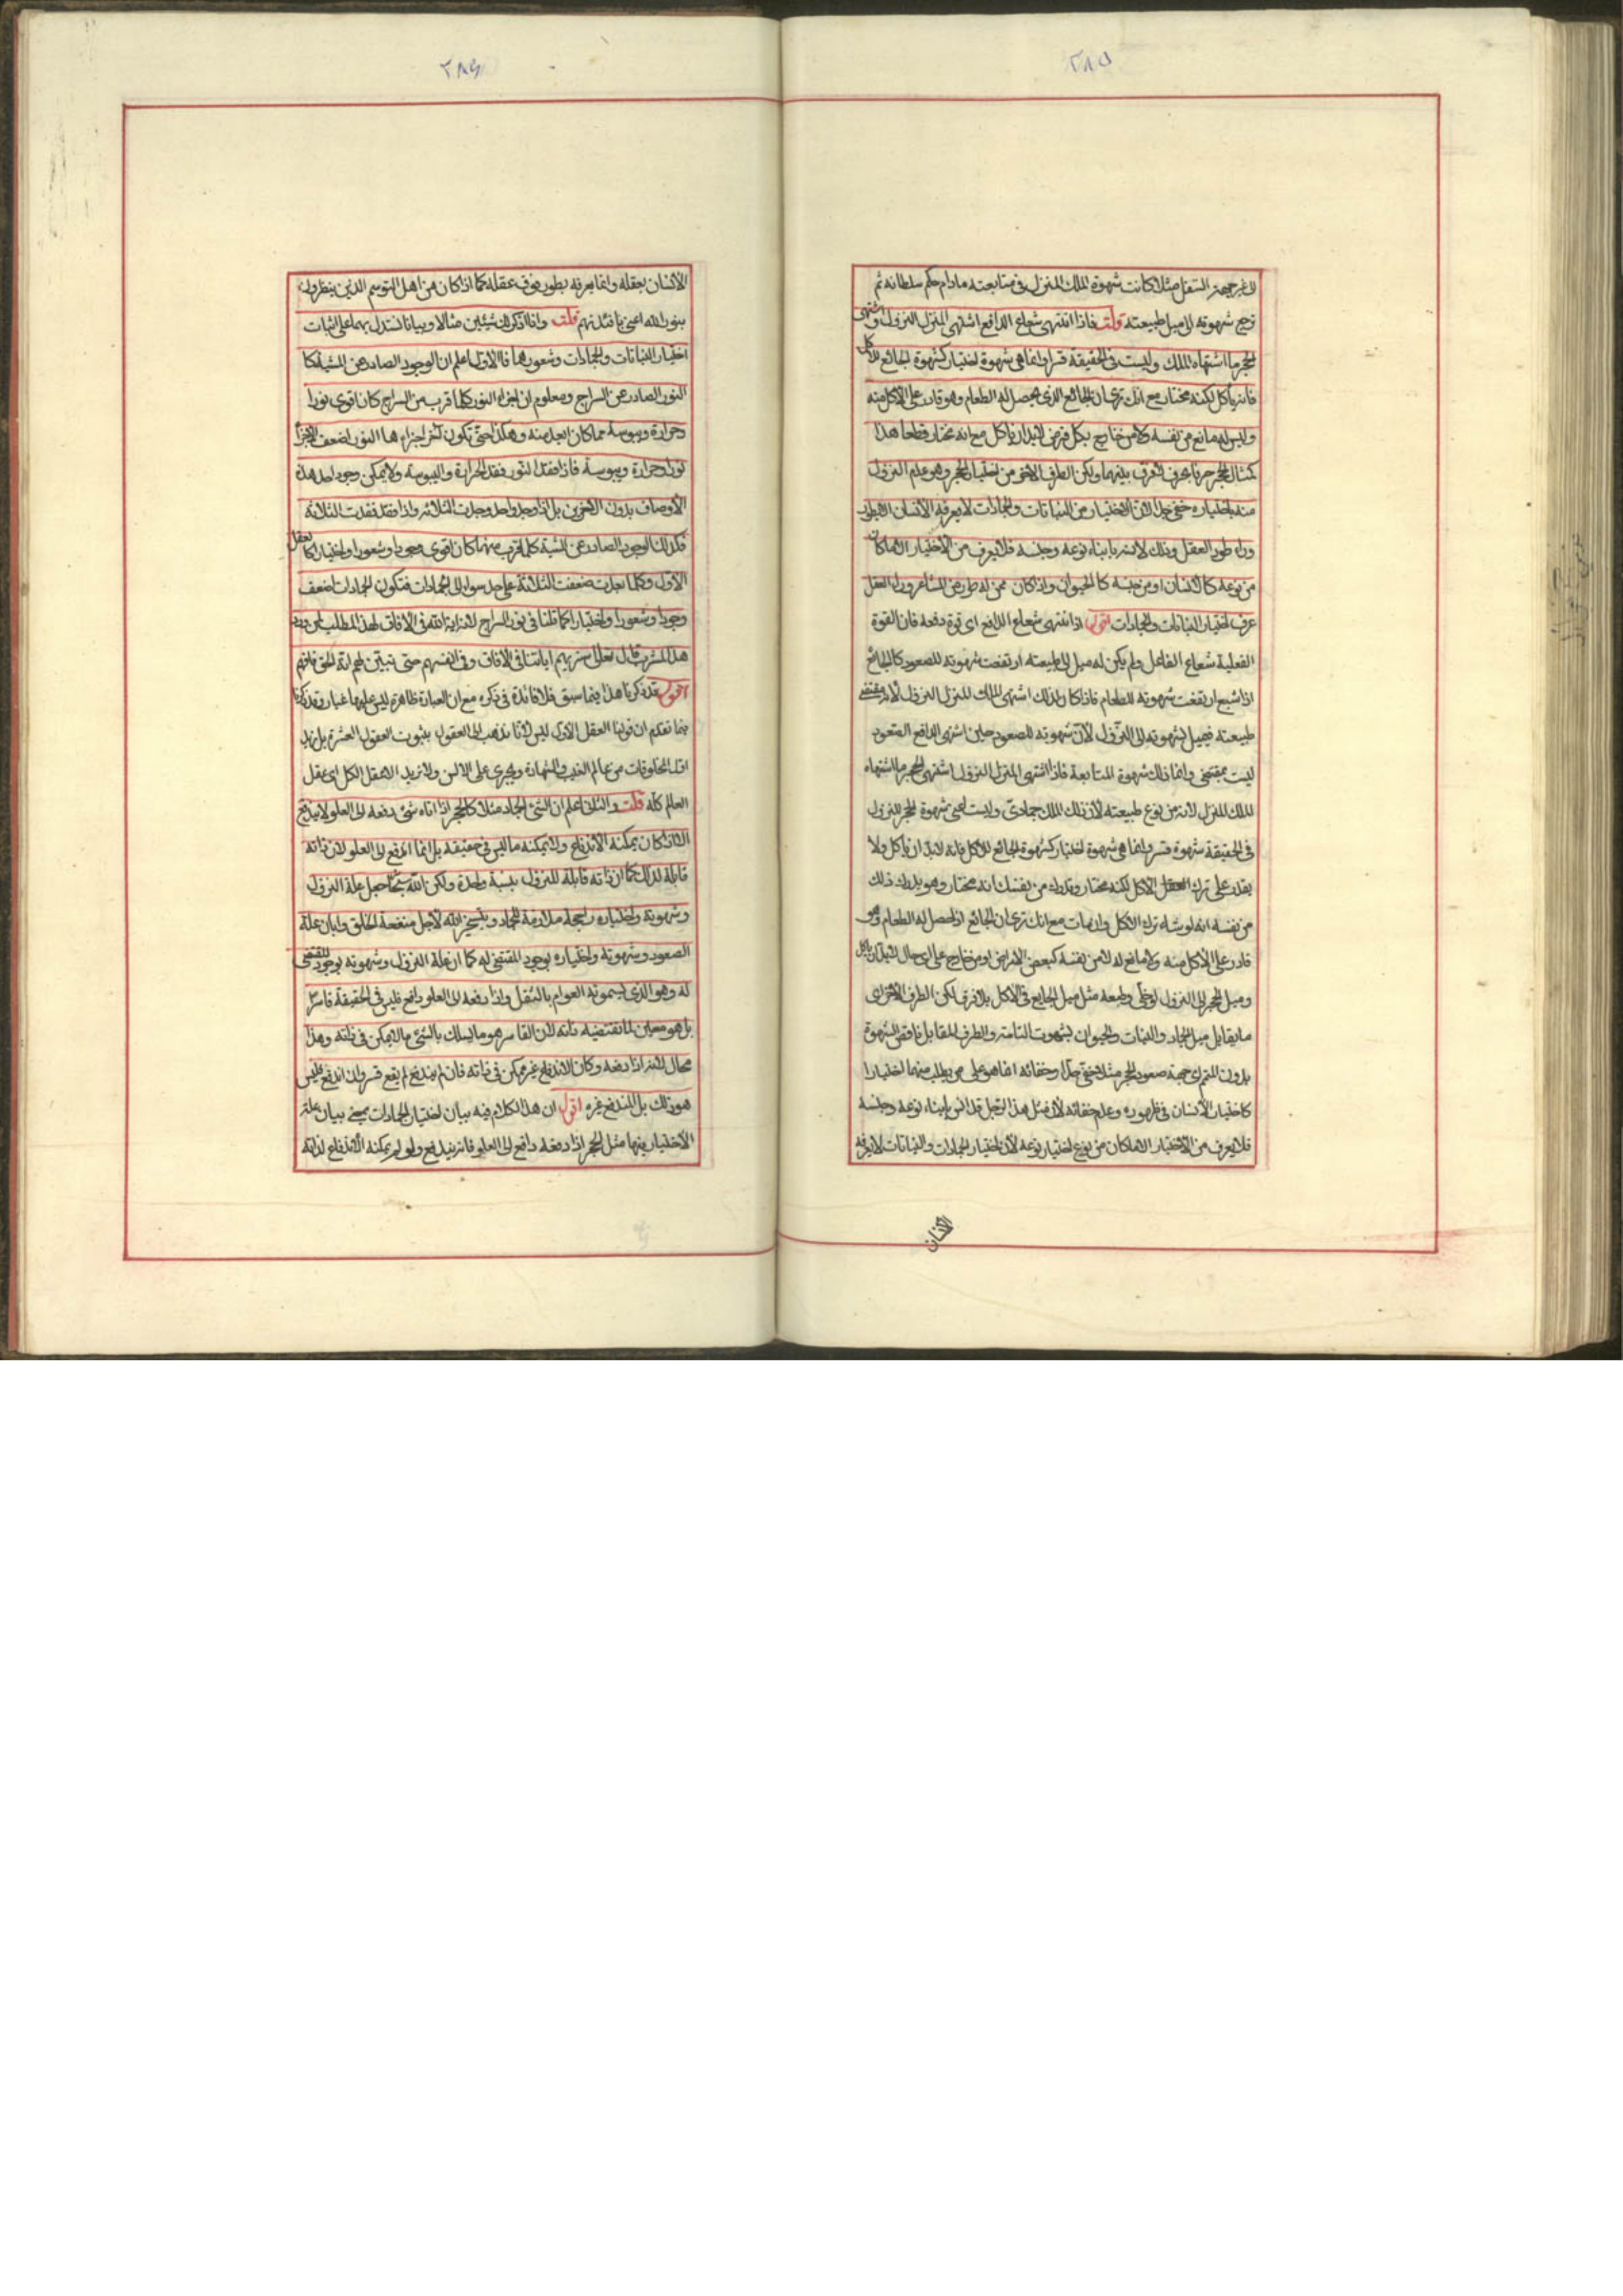 ٢٨٥
لا غير جهة السفل مثلا كانت شهوة الملك المنزل في متابعته مادام حكم سلطانه ثم
ترجع شهوته الى ميل طبيعته قلت فاذا انتهى شعاع الدافع اشتهى المنزل النزول واشتهى
الحجر ما اشتهاه الملك وليست في الحقيقة قسرا وانما هي شهوة اختيار كشهوة الجائع للاكل
فانه ياكل لكنه مختار مع انك ترى ان الجائع الذي يحصل له الطعام وهو قادر على الاكل منه
وليس له مانع من نفسه ولا من خارج بكل فرض لابد ان ياكل مع انه مختار قطعا هذا
كمثال الحجر حرفا بحرف لا فرق بينهما ولكن الطرف الاخر من اختيار الحجر وهو عدم النزول
منه باختياره خفي جدا لان الاختيار من النباتات والجمادات لا يعرفه الانسان الا بطور
وراء طور العقل وذلك لانس بابناء نوعه وجنسه فلا يعرف من الاختيار الا ما كان
من نوعه كالانسان او من جنسه كالحيوان واذا كان ممن له طور من المشاعر وراء العقل
عرف اختيار النباتات والجمادات اقول اذا انتهى شعاع الدافع اي قوة دفعه فان القوة
الفعلية شعاع الفاعل ولم يكن له ميل الى طبيعته ارتفعت شهوته للصعود كالجائع
اذا شبع ارتفعت شهوته للطعام فاذا كان كذلك اشتهى الملك المنزل النزول لانه مقتضى
طبيعته فيميل لشهوته الى النزول لأن شهوته للصعود حين اشتهى الدافع الصعود
ليست بمقتضى وانما تلك شهوة المتابعة فاذا اشتهى المنزل النزول اشتهى الحجر ما اشتهاه
الملك المنزل لانه من نوع طبيعته لان ذلك الملك جمادي وليست اعني شهوة الحجر للنزول
في الحقيقة شهوة قسر وانما هي شهوة اختيار كشهوة الجائع للاكل فانه لابد ان ياكل ولا
يقدر على ترك الاكل لكنه مختار وتدرك من نفسك انه مختار وهو يدرك ذلك
من نفسه انه لو شاء ترك الاكل وان مات مع انك ترى ان الجائع اذا حصل له الطعام وهو
قادر على الاكل منه ولا مانع له لا من نفسه كبعض الامراض او من خارج على اي حال لابد ان ياكل
وميل الحجر الى النزول مثل ميل الجايع في الاكل بلا فرق لكن الطرف الاخر اي
ما يقابل ميل الجماد والنبات والحيوان لشهوته التامة والطرف المقابل ناقص الشهوة
بدون المتمم اي جهة صعود الحجر مثلا خفي جدا وخفائه انما هو على من يطلب منهما اختيارا
كاختيار الانسان في ظهوره وعدم خفائه لان مثل هذا الرجل قد انس بابناء نوعه وجنسه
فلا يعرف من الاختيار الا ما كان من نوع اختيار نوعه لان اختيار الجمادات والنباتات لا يعرفه
الانسان
٢٨٦
الانسان بعقله وانما يعرفه بطور فوق عقله كما اذا كان من اهل التوسم الذين ينظرون
بنور الله اعني بافئدتهم قلت وانا اذكر لك شيئين مثالا وبيانا تستدل بهما على اثبات
اختيار النباتات والجمادات وشعورهما فالاول اعلم ان الوجود الصادر عن المشية كا
النور الصادر عن السراج ومعلوم ان اجزاء النور كلما قرب من السراج كان اقوى نورا
وحرارة ويبوسة مما كان ابعد منه وهكذا حتى تكون اخر اجزاء النور اضعف الاجزاء
نورا وحرارة ويبوسة فاذا فقد النور فقد الحرارة واليبوسة ولا يمكن وجود احد هذه
الاوصاف بدون الاخرين بل اذا وجد واحد وجدت الثلاثة واذا فقد فقدت الثلاثة
فكذلك الوجود الصادر عن المشية كلما قرب منها كان اقوى وجودا وشعورا واختيارا كالعقل
الاول وكلما بعدت ضعفت الثلاثة على حد سواء الى الجمادات فتكون الجمادات اضعف
وجودا وشعورا واختيارا كما قلنا في نور السراج لانه اية الله في الافاق لهذا المطلب لمن ورد
هذا المشرب قال تعالى سنريهم اياتنا في الافاق وفي انفسهم حتى يتبين لهم انه الحق فافهم
اقول قد ذكرنا هذا فيما سبق فلا فائدة في ذكره مع ان العبارة ظاهرة ليس عليها غبار وقد ذكرنا
فيما تقدم ان قولنا العقل الاول ليس لانا نذهب الى العقول بثبوت العقول العشرة بل نريد
اول المخلوقات من عالم الغيب والشهادة ويجري على الالسن ولا نريد الا عقل الكل اي عقل
العالم كله قلت والثاني اعلم ان الشئ الجماد مثلا كالحجر اذا اتاه شئ دفعه الى العلو لا يندفع
الا اذا كان يمكنه الاندفاع ولا يمكنه ما ليس في حقيقته بل انما اندفع الى العلو لان ذاته
قابلة لذلك كما ان ذاته قابلة للنزول بنسبة واحدة ولكن الله سبحانه جعل علة النزول
وشهوته واختياره ملازمة للجماد وبتسخير الله لاجل منفعة الخلق وابان علة
الصعود وشهوته واختياره بوجود المقتضي له كما ان علة النزول وشهوته بوجود المقتضي
له وهو الذي يسمونه العوام بالثقل واذا دفعه الى العلو دافع فليس في الحقيقة قاسرا
بل هو معين لما تقتضيه ذاته لان القاسر هو ما يسلك بالشئ ما لا يمكن في ذاته وهذا
محال لانه اذا دفعه وكان الاندفاع غير ممكن في ذاته فان لم يندفع لم يقع قسر وان اندفع فليس
هو ذلك بل المندفع غيره اقول ان هذا الكلام فيه بيان اختيار الجمادات بمعنى بيان علة
الاختيار منها مثل الحجر اذا دفعه دافع الى العلو فانه يندفع ولو لم يمكنه الاندفاع لذاته